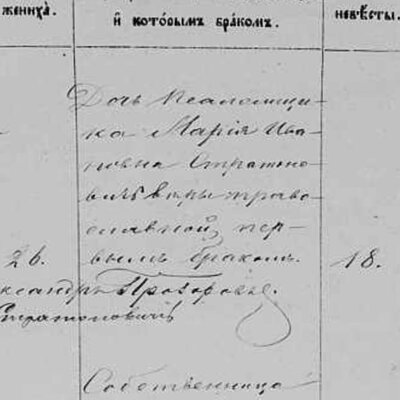 жениха̀.
и҆ кото́рымъ бра́комъ.
невѣ́сты.
Дочь Псаломщи-
ка Марія Ива-
новна Стратоно-
вичъ вѣры право-
славной, пер-
вымъ бракомъ.
26.
18.
ксандръ Прозоровъ.
Стратоновичъ
Собственница